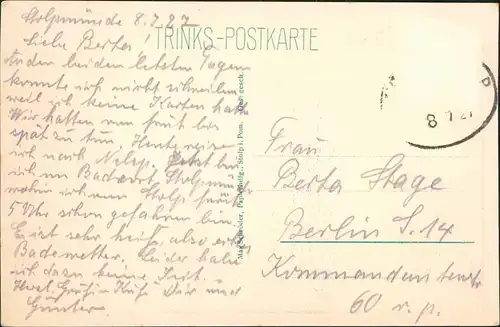 Stolpmünde 8.7.27
Liebe Berta!
An den beiden letzten Tagen
konnte ich nicht schreiben
weil ich keine Karten hatte
Wir hatten von früh bis
spät zu tun. Heute reise
ich nach Jetzt bin
ich im Badeort Stolpmünde
wohin ich von Stolp früh
5 Uhr schon gefahren bin.
Es ist sehr heiß, also
Badewetter. Leider habe
ich dazu keine Zeit.
Herzl. Grüße u. Küsse Dir und
Günter.
TRINKS-POSTKARTE
Max Schröder, Stolp i. Pom. Ges. gesch.
8 7 27
Frau
Berta Stage
Berlin S. 14
Kommandantenstr
60 v. p.